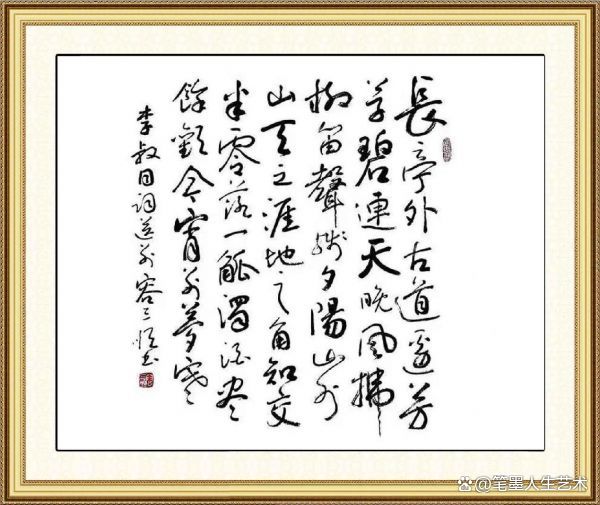 長亭外古道邊芳
草碧連天晚風拂
柳笛聲殘夕陽山外
山天之涯地之角知交
半零落一觚濁酒盡
餘歡今宵别夢寒
李叔同詞送别容三恒书
笔墨人生艺术